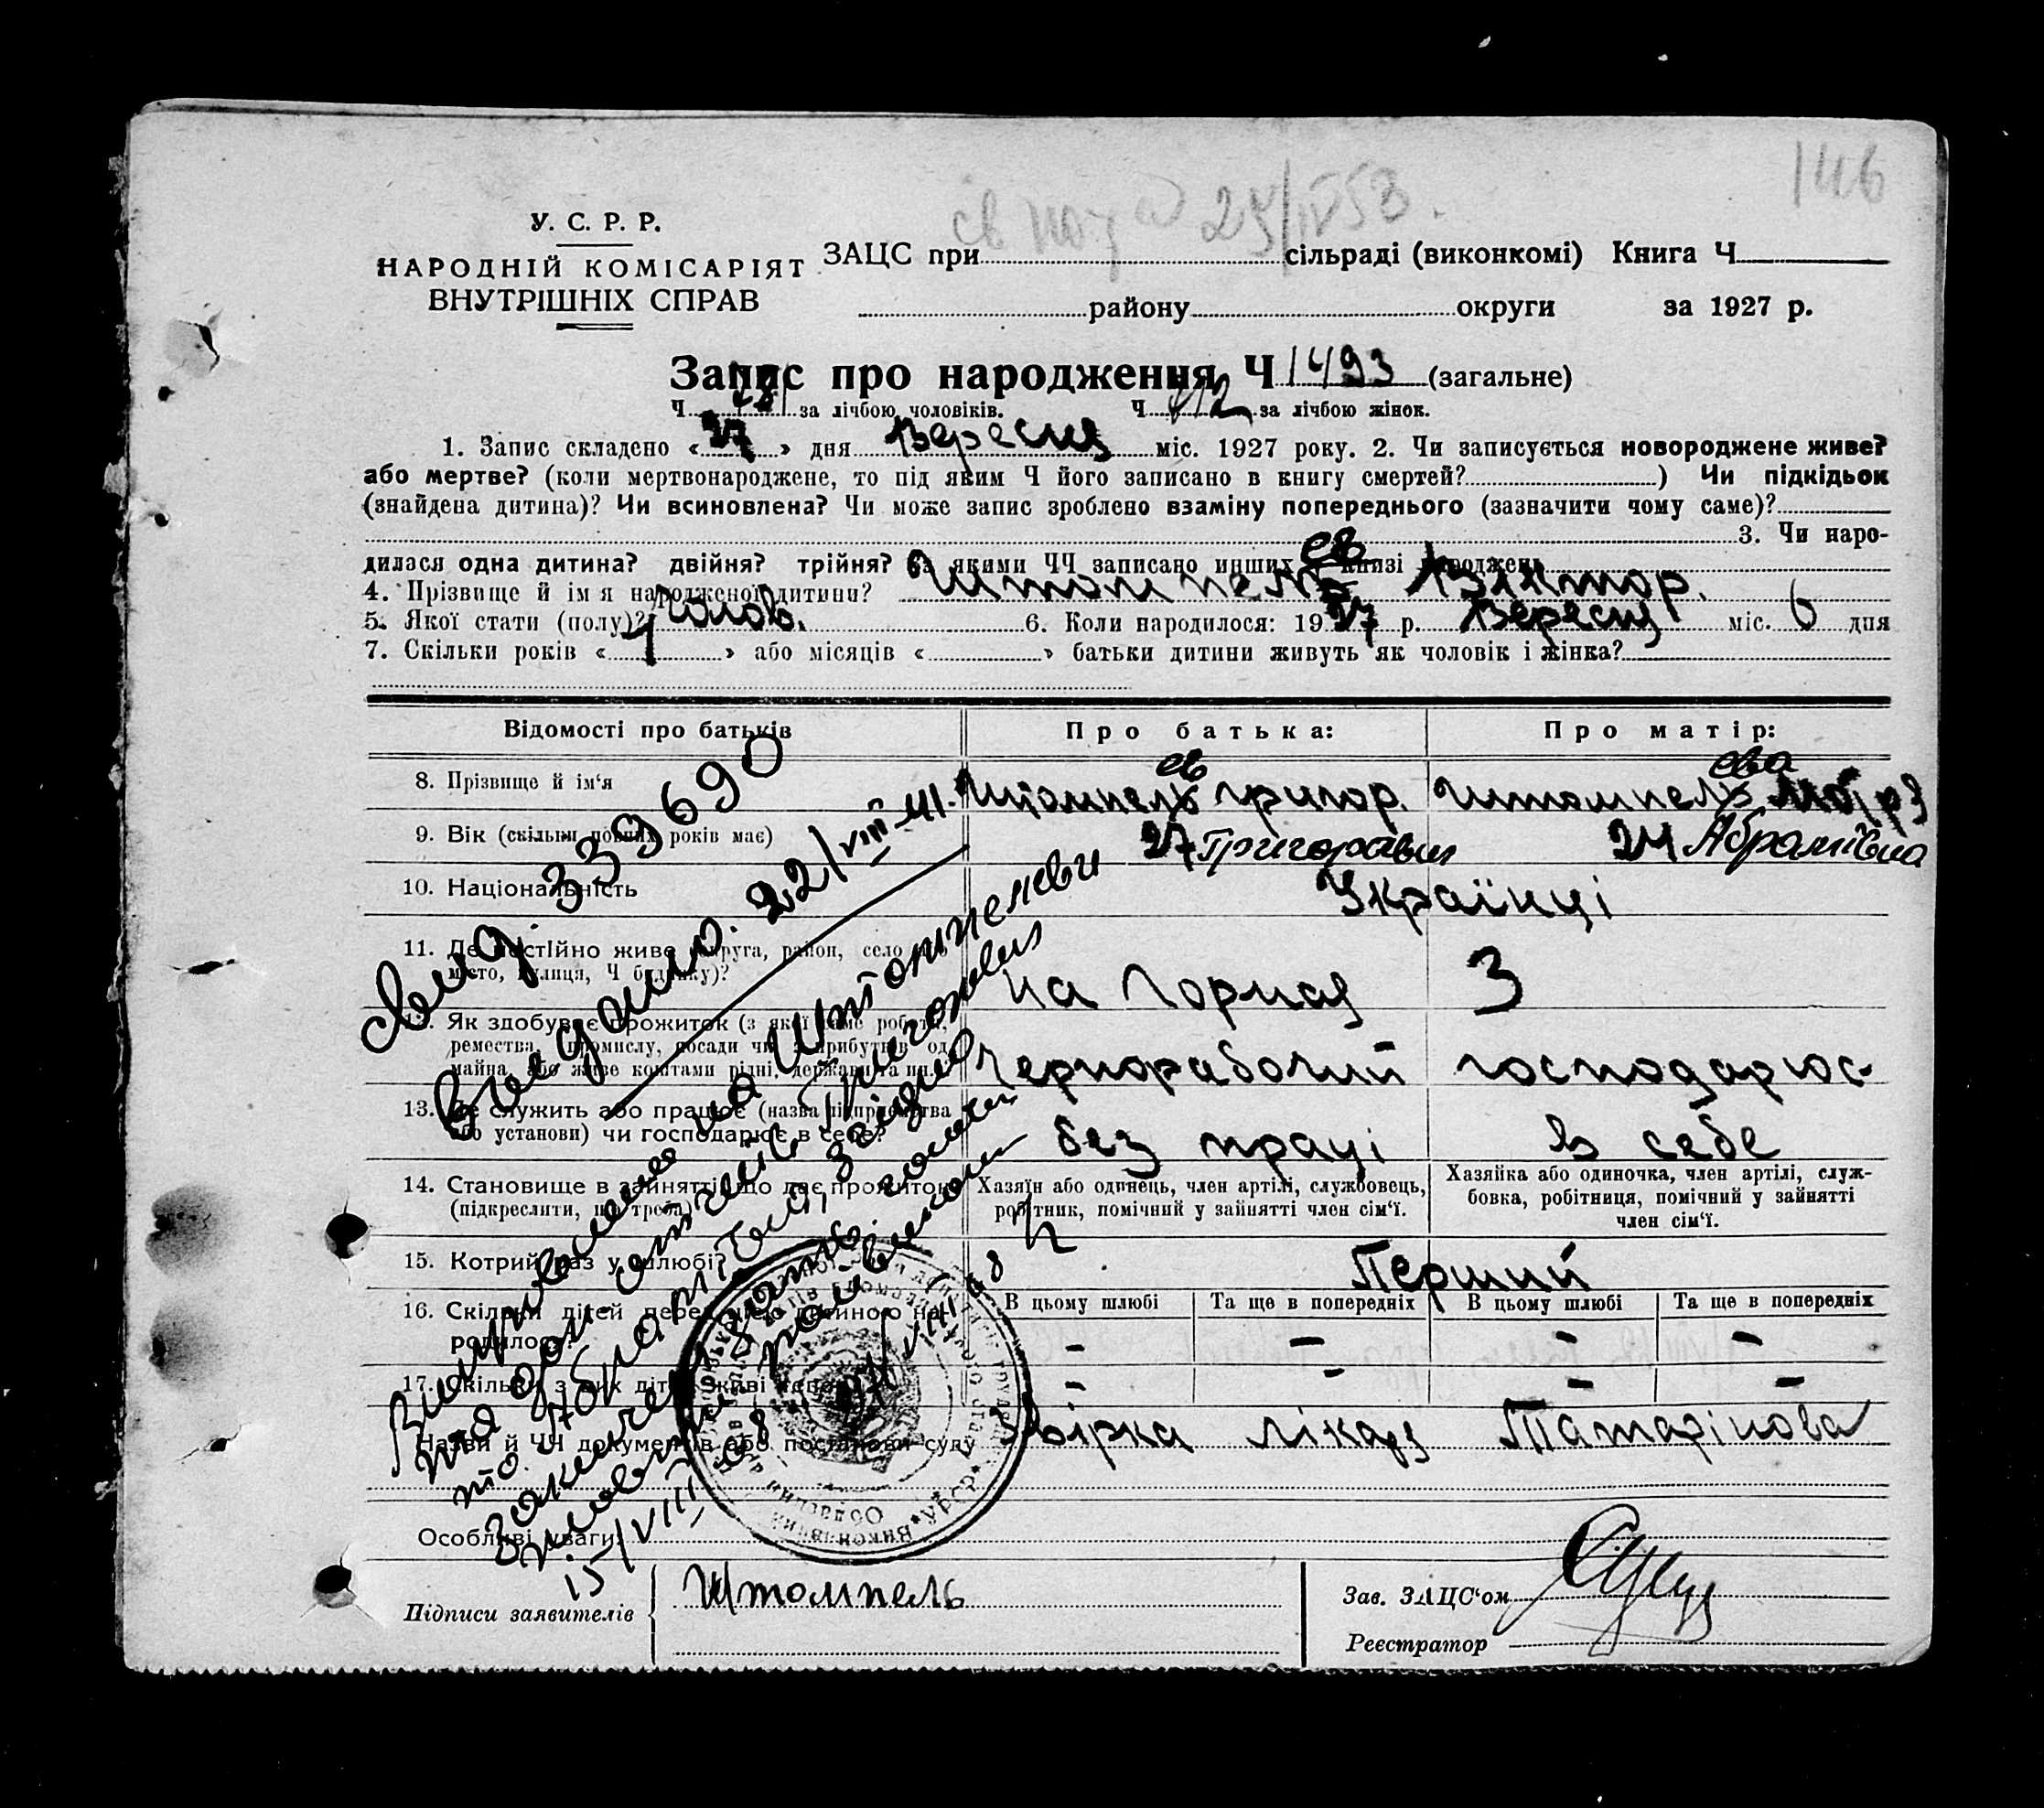 146
св 23/IV 53.
У. С. Р. Р.
НАРОДНІЙ КОМІСАРІЯТ
ВНУТРІШНІХ СПРАВ
ЗАЦС при сільраді (виконкомі) Книга Ч
району округи за 1927 р.
Запис про народження Ч 1493 (загальне)
Ч за лічбою чоловіків. Ч 712 за лічбою жінок.
1. Запис складено « 27 » дня Вересня міс. 1927 року. 2. Чи записується новороджене живе?
або мертве? (коли мертвонароджене, то під яким Ч його записано в книгу смертей? ) Чи підкідьок
(знайдена дитина)? Чи всиновлена? Чи може запис зроблено взаміну попереднього (зазначити чому саме)?
3. Чи наро-
дилася одна дитина? двійня? трійня? За якими ЧЧ записано инших в книзі народжень
ев
4. Прізвище й ім'я народженої дитини? Штомпель Віктор.
5. Якої стати (полу)? Чолов. 6. Коли народилося: 1927 р. Вересня міс. 6 дня
7. Скільки років « 1 » або місяців « » батьки дитини живуть як чоловік і жінка?
Відомості про батьків Про батька: Про матір:
ев ева
8. Прізвище й ім'я Штомпель Григор. Штомпель
9. Вік (скільки повних років має) 27 Григорович 24 Абрамівна
10. Національність Українці
11. Де постійно живе (округа, район, село або
місто, вулиця, Ч будинку)? на Горная 3
12. Як здобуває прожиток (з якої саме роботи,
ремества, промислу, посади чи з прибутків од
майна, або живе коштами рідні, держави та ин.) Чернорабочий господарює
13. Де служить або працює (назва підприємства
або установи) чи господарює в себе? без праці в себе
14. Становище в зайнятті, що дає прожиток
(підкреслити, що треба)
Хазяїн або одинець, член артілі, службовець,
робітник, помічний у зайнятті член сім'ї.
Хазяйка або одиночка, член артілі, служ-
бовка, робітниця, помічний у зайнятті
член сім'ї.
15. Котрий раз у шлюбі? Перший
16. Скільки дітей перед цією дитиною на-
родилось?
В цьому шлюбі Та ще в попередніх В цьому шлюбі Та ще в попередніх
- - - -
17. Скільки з них дітей живі тепер - - - -
Назви й ЧЧ документів або постанови суду Звірка лікаря Татарінова
Особливі уваги:
Підписи заявителів Штомпель
Зав. ЗАЦС'ом
Реєстратор
Свид. 339690
Выдано. 22/VIII-41.
Виправлено на Штомпелєви
на доп. отчеств Григорович
то Абрамівна, згідно
15/VIII
УРСР